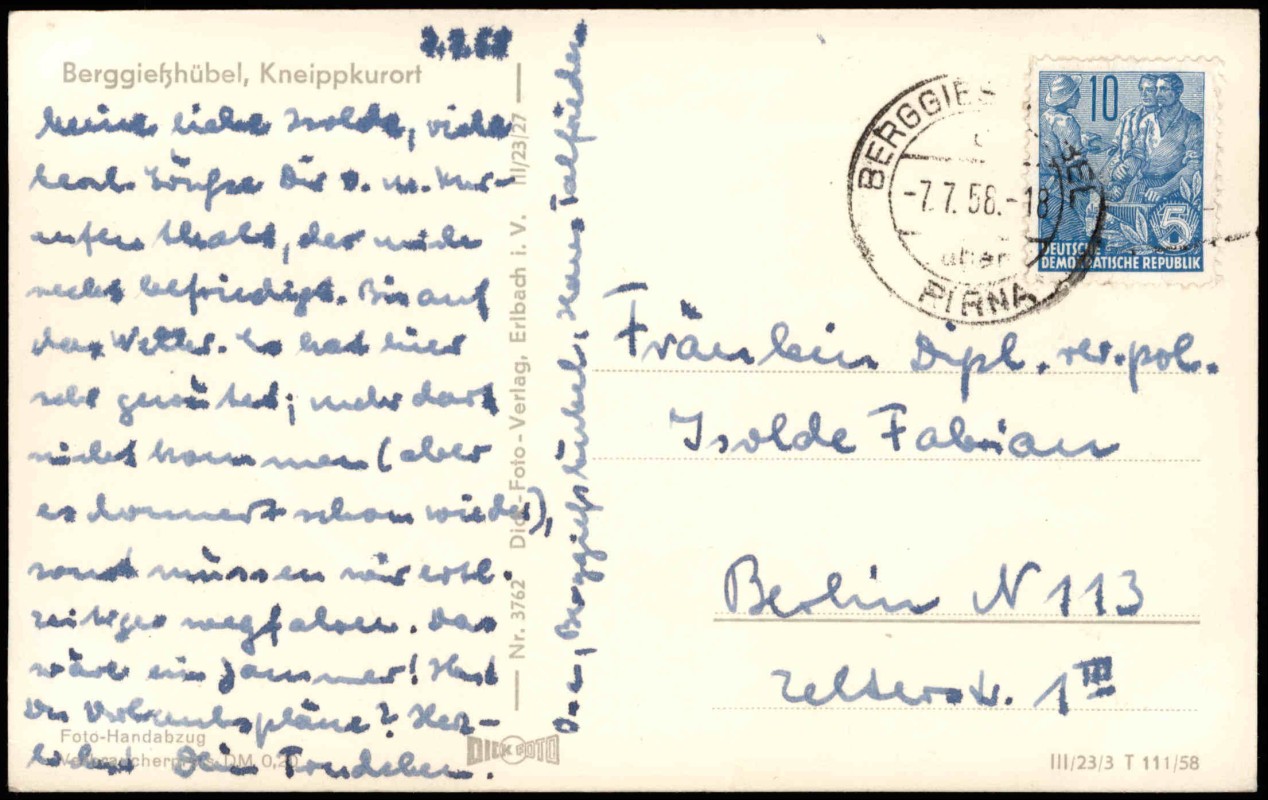 7.7.58
Berggießhübel, Kneippkurort
Meine liebe Isolde, viele
herzl. Grüße Dir v. m. Kur-
aufenthalt, der mich
recht befriedigt. Bis auf
das Wetter. Es hat hier
sehr gewütet; mehr darf
nicht kommen (aber
es donnert schon wieder),
sonst müssen wir evtl.
zeitiger wegfahren. Das
wäre ein Jammer! Hast
Du Urlaubspläne? Herz-
lichst Dein Trudchen.
Foto-Handabzug
Verbraucherpreis DM 0,20
Berggießhübel, Haus Talfrieden
Nr. 3762 Dick-Foto-Verlag, Erlbach i. V. III/23/27
DICK FOTO
BERGGIESSHÜBEL
-7.7.58.-18
über
PIRNA
10
5
DEUTSCHE
DEMOKRATISCHE REPUBLIK
Fräulein Dipl. rer. pol.
Isolde Fabian
Berlin N 113
Zelterstr. 1 III
III/23/3 T 111/58